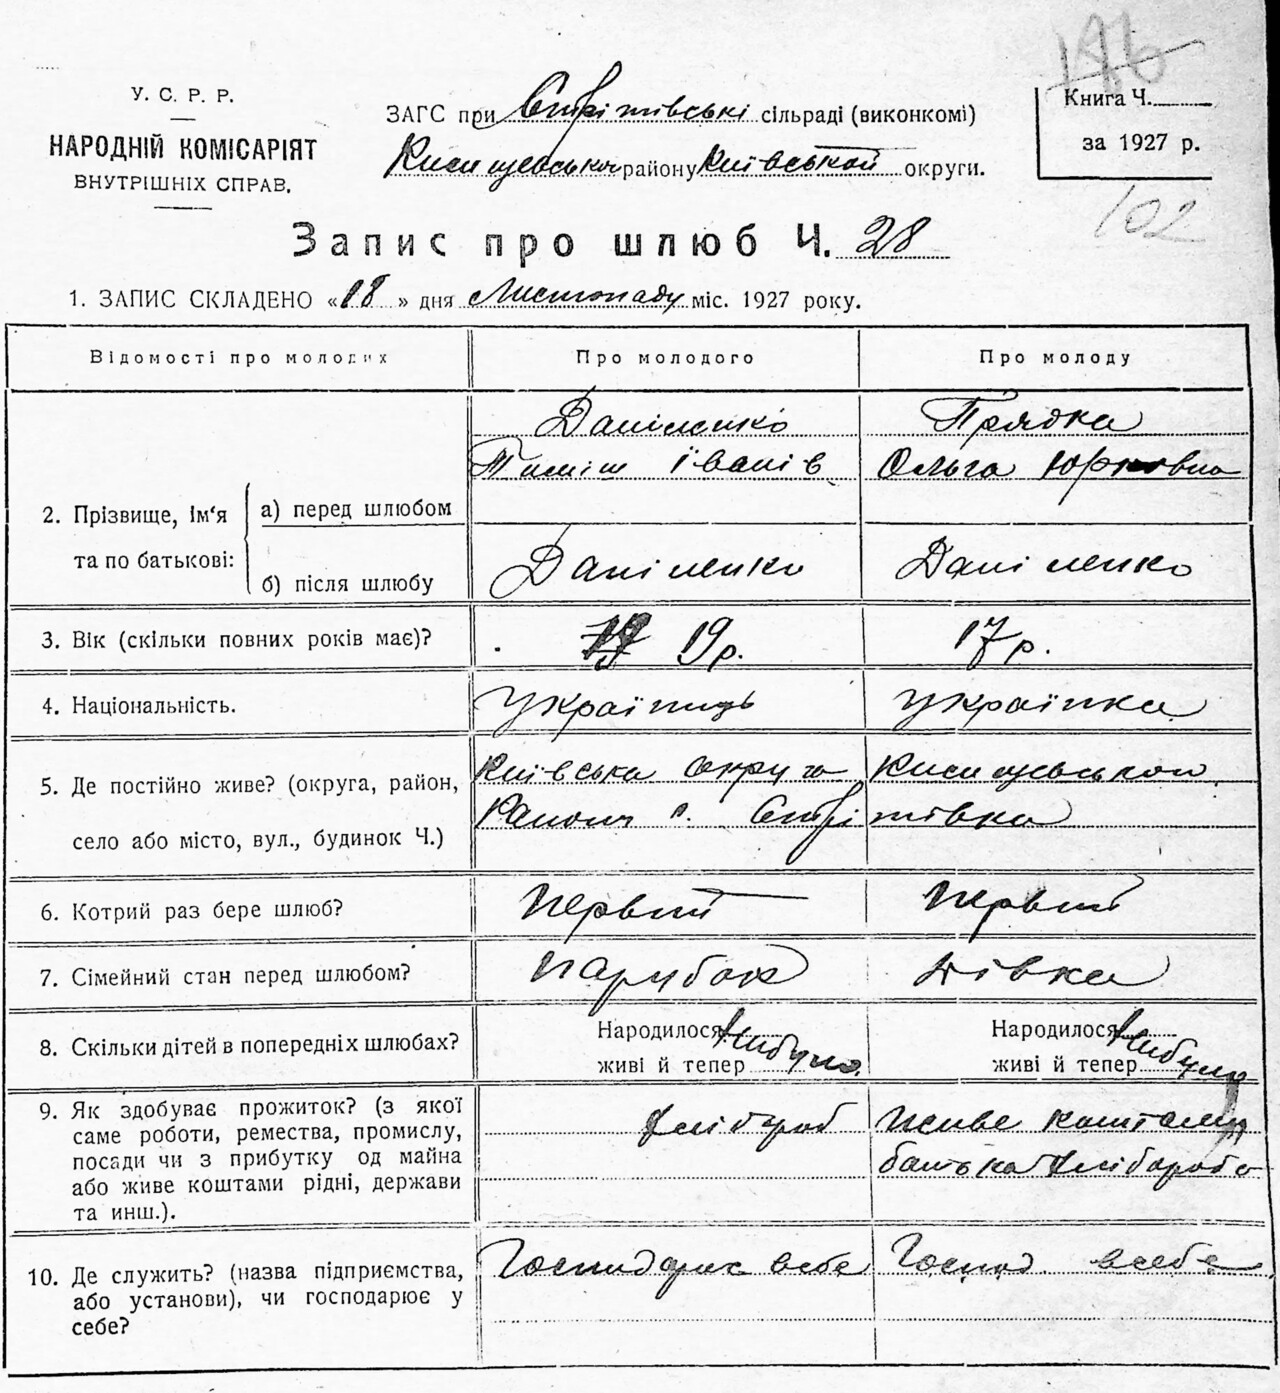 146
У. С. Р. Р.
НАРОДНІЙ КОМІСАРІЯТ
ВНУТРІШНІХ СПРАВ.
ЗАГС при Стрітівські сільраді (виконкомі)
району Київської округи.
Книга Ч.
за 1927 р.
102
Запис про шлюб Ч. 28
1. ЗАПИС СКЛАДЕНО «18» дня Листопаду міс. 1927 року.
Відомості про молодих
Про молодого
Про молоду
2. Прізвище, ім'я та по батькові:
а) перед шлюбом
Даніленко
Тиміш Іванів
Прядка
Ольга Юрковна
б) після шлюбу
Даніленко
Даніленко
3. Вік (скільки повних років має)?
19 р.
17 р.
4. Національність.
Українць
Українка
5. Де постійно живе? (округа, район,
село або місто, вул., будинок Ч.)
Київська округа
с. Стрітівка
6. Котрий раз бере шлюб?
Первий
Первий
7. Сімейний стан перед шлюбом?
Парубок
Дівка
8. Скільки дітей в попередніх шлюбах?
Народилося Небуло
живі й тепер
Народилося Небуло
живі й тепер
9. Як здобуває прожиток? (з якої
саме роботи, ремества, промислу,
посади чи з прибутку од майна
або живе коштами рідні, держави
та инш.).
Хлібороб
живе коштами
батька Хлібороба
10. Де служить? (назва підприємства,
або установи), чи господарює у
себе?
всебе
Господ. всебе